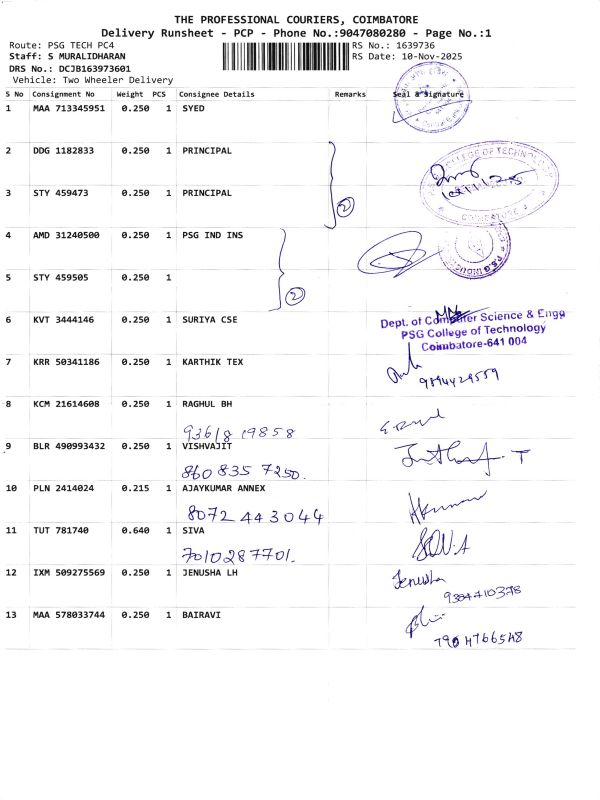 THE PROFESSIONAL COURIERS, COIMBATORE
Delivery Runsheet - PCP - Phone No.:9047080280 - Page No.:1
Route: PSG TECH PC4
RS No.: 1639736
Staff: S MURALIDHARAN
RS Date: 10-Nov-2025
DRS No.: DCJB163973601
Vehicle: Two Wheeler Delivery
S No Consignment No Weight PCS Consignee Details Remarks Seal & Signature
1 MAA 713345951 0.250 1 SYED
2 DDG 1182833 0.250 1 PRINCIPAL
PSG COLLEGE OF TECHNOLOGY
COIMBATORE
3 STY 459473 0.250 1 PRINCIPAL
2
4 AMD 31240500 0.250 1 PSG IND INS
5 STY 459505 0.250 1
2
6 KVT 3444146 0.250 1 SURIYA CSE
Dept. of Computer Science & Engg
PSG College of Technology
Coimbatore-641 004
7 KRR 50341186 0.250 1 KARTHIK TEX
9894429559
8 KCM 21614608 0.250 1 RAGHUL BH
93618 19858
9 BLR 490993432 0.250 1 VISHVAJIT
860 835 7250.
10 PLN 2414024 0.215 1 AJAYKUMAR ANNEX
8072 443044
11 TUT 781740 0.640 1 SIVA
7010287701.
12 IXM 509275569 0.250 1 JENUSHA LH
Jenusha
13 MAA 578033744 0.250 1 BAIRAVI